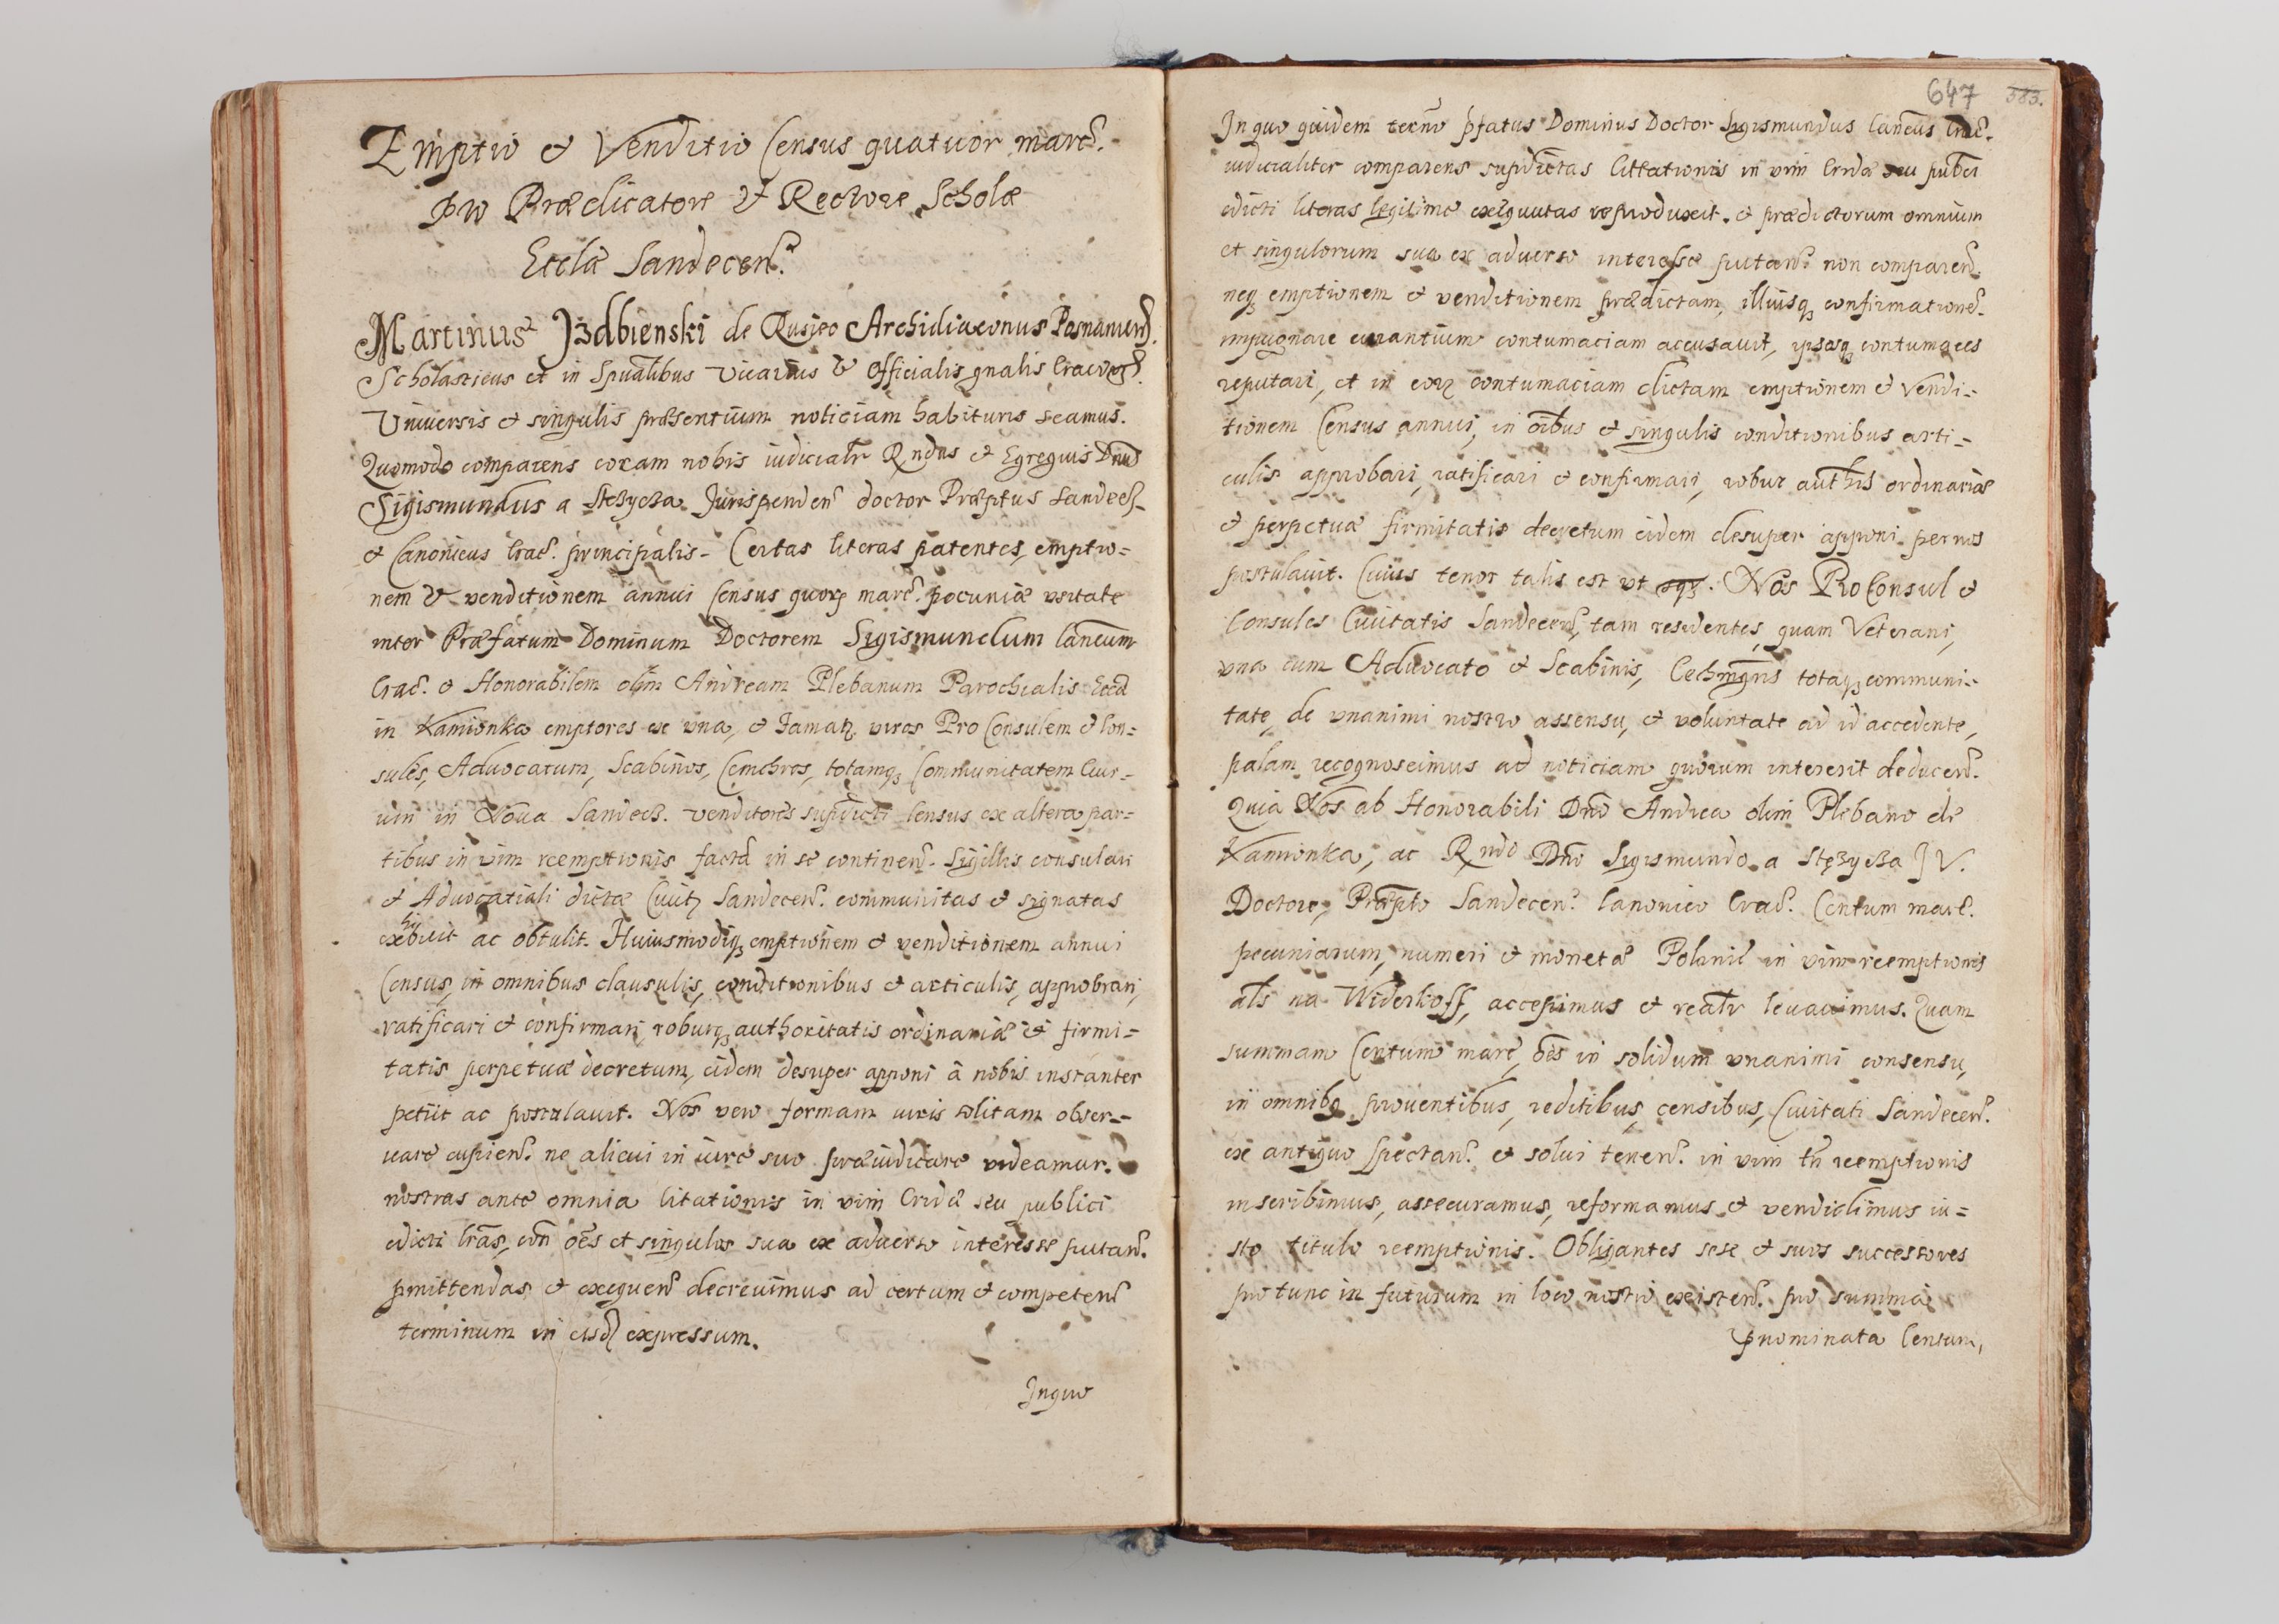 Emptio et Venditio Census quatuor marc.
pro Prædicatore et Rectore Scholæ
Ecclæ Sandecen.
Martinus Izdbienski de Rusiec Archidiaconus Posnanien.
Scholasticus et in Spualibus Vicarius et Officialis gnalis Cracovien.
Universis et singulis præsentium noticiam habituris
Quomodo comparens coram nobis iudicialr Rndus et Egregius Dnus
Sigismundus a Stezycza Jurisprden. doctor Præptus Sandecz.
et Canonicus Crac. principalis. Certas literas patentes, emptio=
nem et venditionem annui Census quor marc. pecuniæ usitate
inter Præfatum Dominum Doctorem Sigismundum Cancum
Crac. et Honorabilem olim Andream Plebanum Parochialis Eccl
in Kamionka emptores ex una, et Famat. viros Pro Consulem et Con=
sules, Advocatum, Scabinos, totamq Communitatem Civi=
um in Nova Sandecz. venditores supdicti Census ex altera par=
tibus in vim reemptionis facta in se continen. Sigillis consulari
et Advocatiali dictæ Civit Sandecen. communitas et signatas
exhibuit ac obtulit. Huiusmodiq emptionem et venditionem annui
Census, in omnibus clausulis, conditionibus et articulis, approbari,
ratificari et confirmari, roburq authoritatis ordinariæ et firmi=
tatis perpetuæ decretum, eidem desuper apponi à nobis instanter
petiit ac postulavit. Nos vero formam iuris solitam obser=
uare cupien. ne alicui in iure suo præiudicare videamur.
nostras ante omnia litationis in vim Cridæ seu publici
edicti lras, con oes et singulos sua ex adverso interesse putan.
pmittendas et exequen decrevimus ad certum et competen
terminum in eisd expressum.
Inquo
647 583.
In quo quidem terno pfatus Dominus Doctor Sigismundus Cancus Crac.
iudicialiter comparens supdictas littationis in vim Cridæ seu pubci
edicti literas legitime exequutas reproduxit. et prædictorum omnium
et singulorum sua ex adverso interesse putan. non comparen.
neq emptionem et venditionem prædictam, illiusq confirmatione
impugnare curantium contumaciam accusavit, ipsosq contumaces
reputari, et in eor contumaciam dictam emptionem et Vendi=
tionem Census annui, in oibus et singulis conditionibus arti=
culis approbari, ratificari et confirmari, robur authis ordinariæ
et perpetuæ firmitatis decretum eidem desuper apponi per nos
postulavit. Cuius tenor talis est ut sqr. Nos Pro Consul et
Consules Civitatis Sandecen, tam residentes, quam Veterani,
una cum Advocato et Scabinis, Cechmgris totaq communi=
tate, de unanimi nostro assensu, et voluntate ad id accedente,
palam recognoscimus ad noticiam quorum intererit deducen.
Quia Nos ab Honorabili Dno Andrea olim Plebano de
Kamionka, ac Rndo Dno Sigismundo a Stęzycza J V.
Doctore, Præpto Sandecen. Canonico Crac. Centum marc.
pecuniarum, numeri et monetæ Polnic in vim reemptionis
als na Widerkoff, accepimus et realr levavimus. Quam
summam Centum marc, oes in solidum unanimi consensu,
in omnibq proventibus, reditibus, censibus, Civitati Sandecen.
ex antiquo spectan. et solui tenen. in vim tn reemptionis
inscribimus, assecuramus, reformamus et vendidimus iu=
sto titulo reemptionis. Obligantes sese et suos successores
pro tunc in futurum in loco nostro existen. pro summa
pnominata Censum,